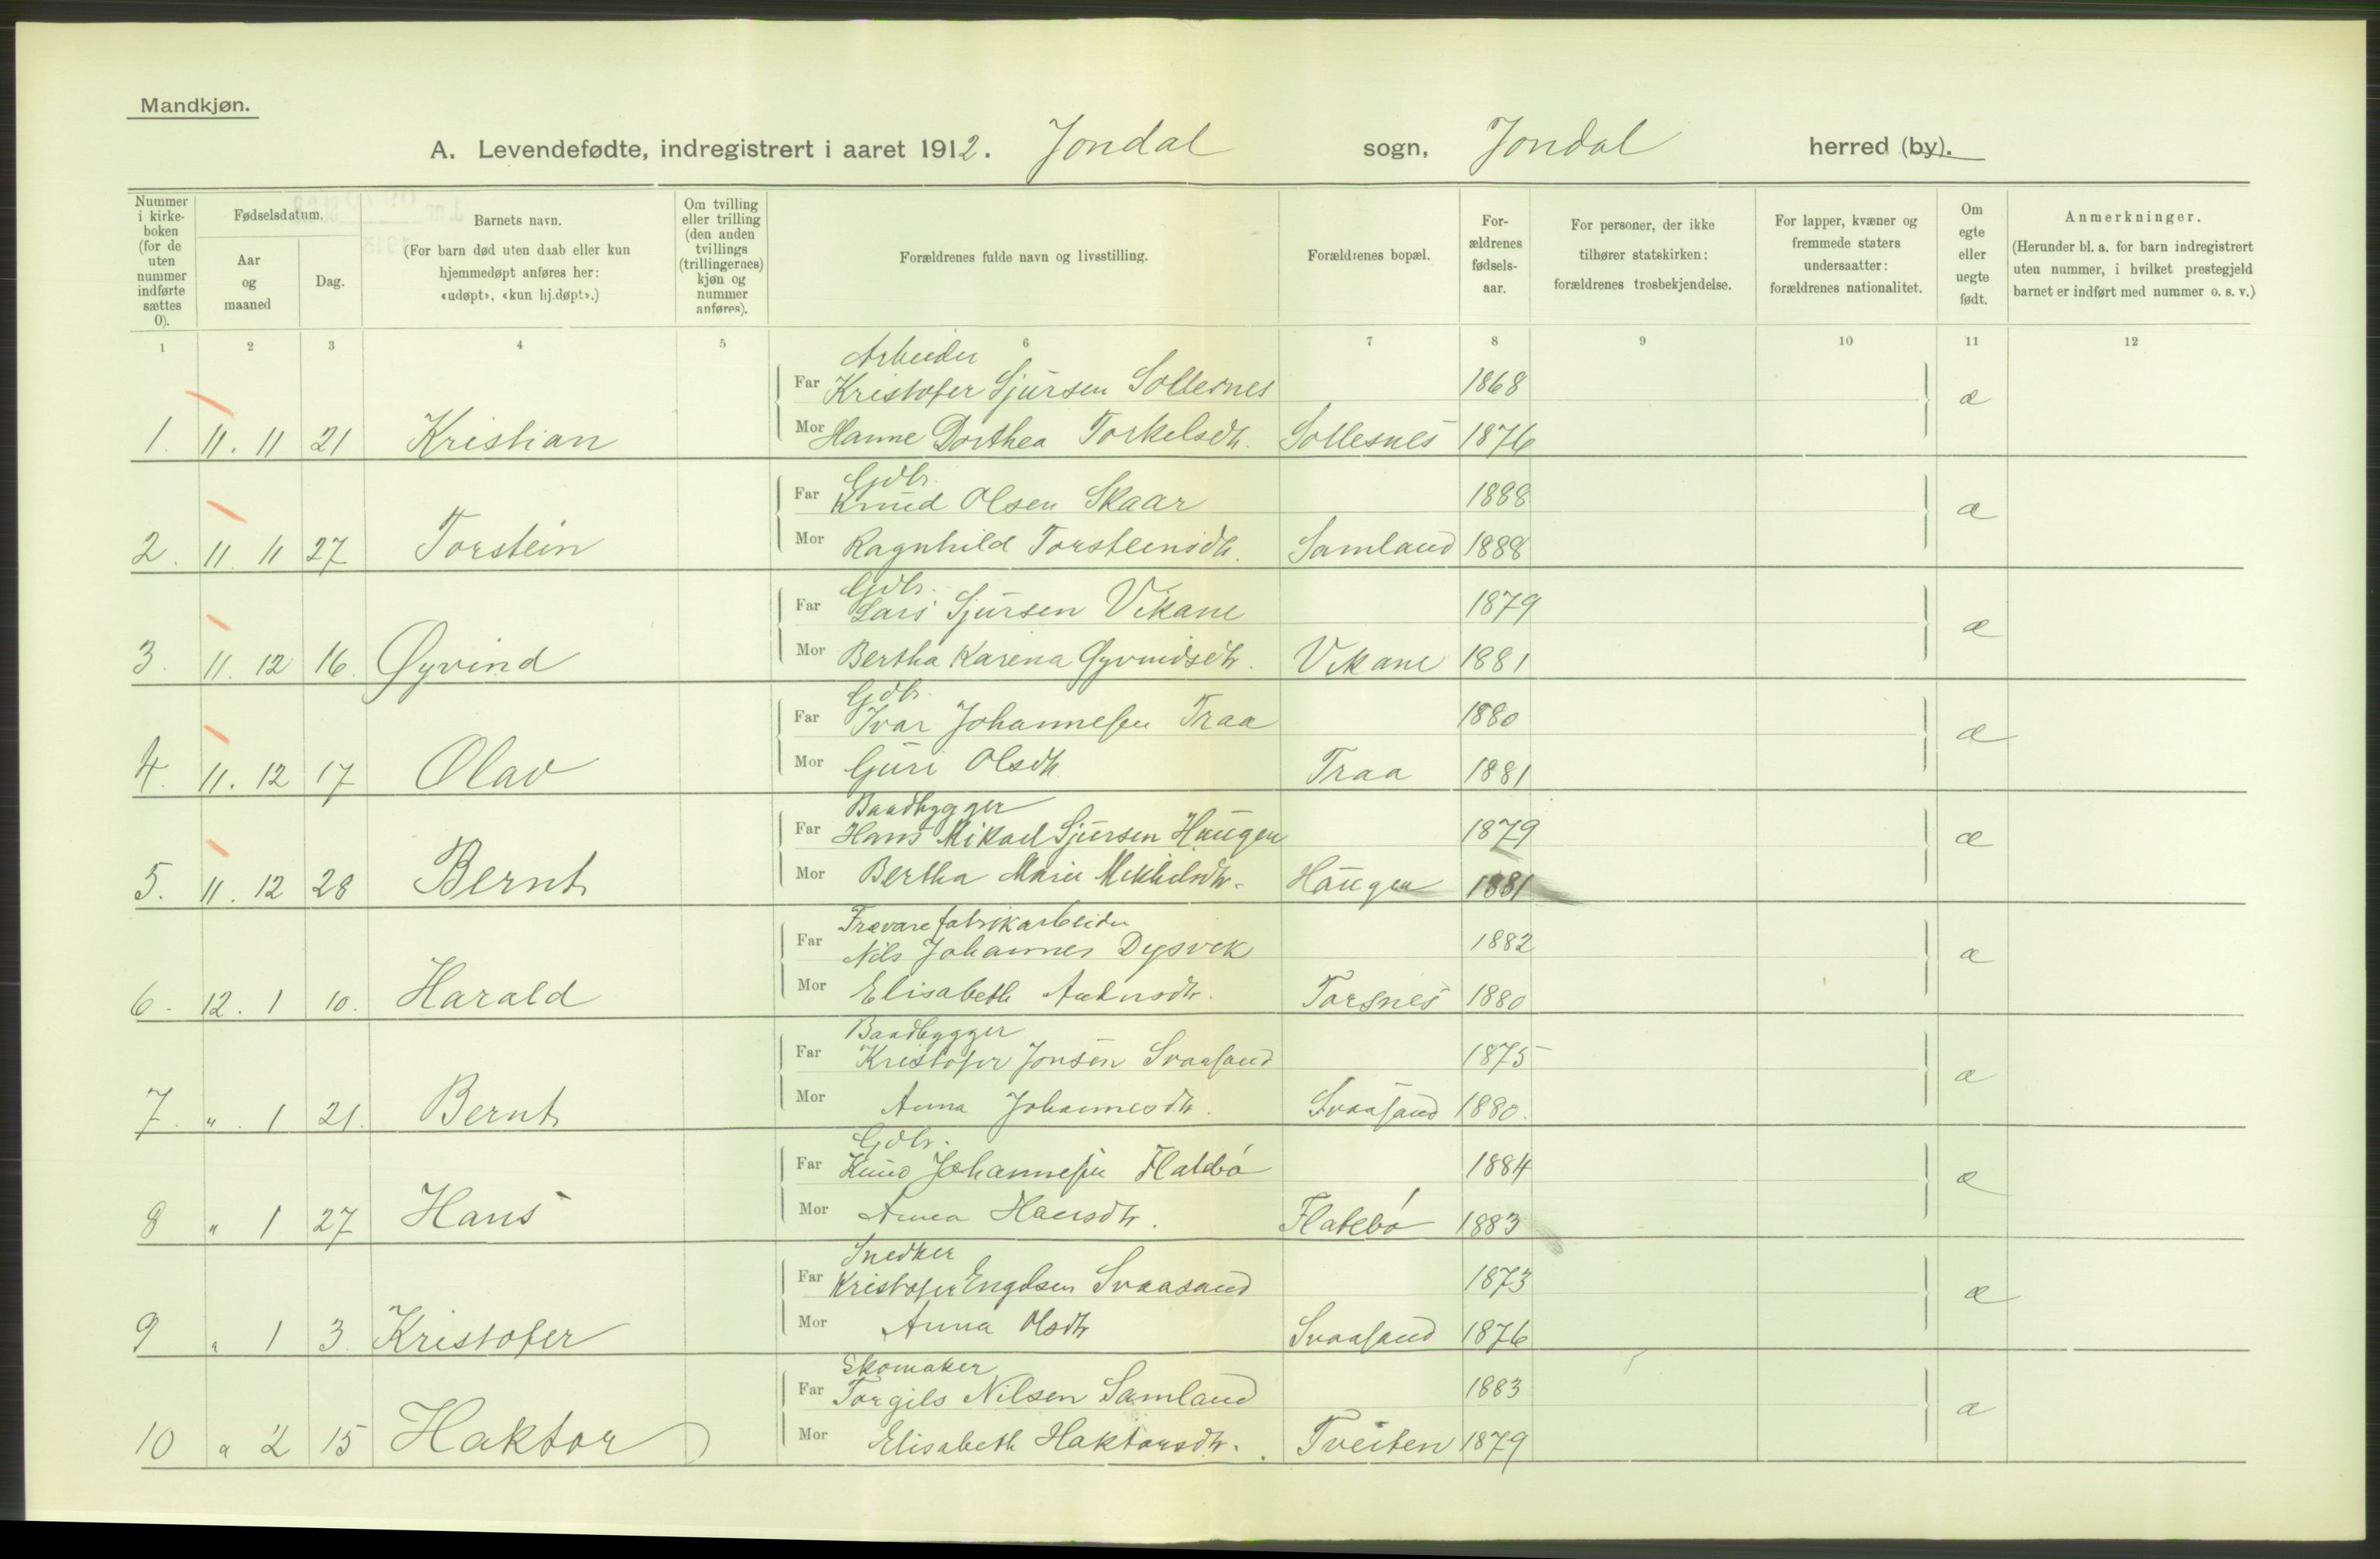 Mandkjøn.
A. Levendefødte, indregistrert i aaret 1912. Jondal sogn, Jondal herred (by).
Nummer i kirke-boken (for de uten nummer indførte sættes 0).
Fødselsdatum.
Aar og maaned
Dag.
Barnets navn.
(For barn død uten daab eller kun hjemmedøpt anføres her: «udøpt», «kun hj.døpt».)
Om tvilling eller trilling (den anden tvillings (trillingernes) kjøn og nummer anføres).
Forældrenes fulde navn og livsstilling.
Forældrenes bopæl.
For-ældrenes fødsels-aar.
For personer, der ikke tilhører statskirken: forældrenes trosbekjendelse.
For lapper, kvæner og fremmede staters undersaatter: forældrenes nationalitet.
Om egte eller uegte født.
Anmerkninger.
(Herunder bl. a. for barn indregistrert uten nummer, i hvilket prestegjeld barnet er indført med nummer o. s. v.)
1 2 3 4 5 6 7 8 9 10 11 12
Arbeider
Far Kristofer Sjursen Sollesnes 1868 æ
1. 11. 11 21 Kristian Mor Hanne Dorthea Torkelsdtr. Sollesnes 1876
Gdbr.
Far Knud Olsen Skaar 1888 æ
2. 11. 11 27 Torstein Mor Ragnhild Torsteinsdtr. Samland 1888
Gdbr.
Far Lars Sjursen Vikane 1879 æ
3. 11. 12 16. Øyvind Mor Bertha Karena Øyvindsdtr. Vikane 1881
Gdbr.
Far Ivar Johannesen Traa 1880 æ
4. 11. 12 17 Olav Mor Guri Olsdtr. Traa 1881
Baadbygger
Far Hans Mikael Sjursen Haugen 1879 æ
5. 11. 12 28 Bernt Mor Bertha Marie Mikkelsdtr. Haugen 1881
Trævarefabrikarbeider
Far Nils Johannes Dysvik 1882 æ
6. 12. 1 10. Harald Mor Elisabeth Torsnes 1880
Baadbygger
Far Kristofer Jonsen Svaasand 1875 æ
7. " . 1 21. Bernt Mor Anna Johannesdtr. Svaasand 1880.
Gdbr.
Far Knud Johannesen Flatebø 1884 æ
8 " 1 27 Hans Mor Anna Hansdtr. Flatebø 1883
Snedker
Far Kristofer Engelsen Svaasand 1873 æ
9 " 1 3. Kristofer Mor Anna Olsdtr Svaasand 1876
Skomaker
Far Torgils Nilsen Samland 1883 æ
10 " 2 15 Haktor Mor Elisabeth Haktorsdtr. Tveiten 1879